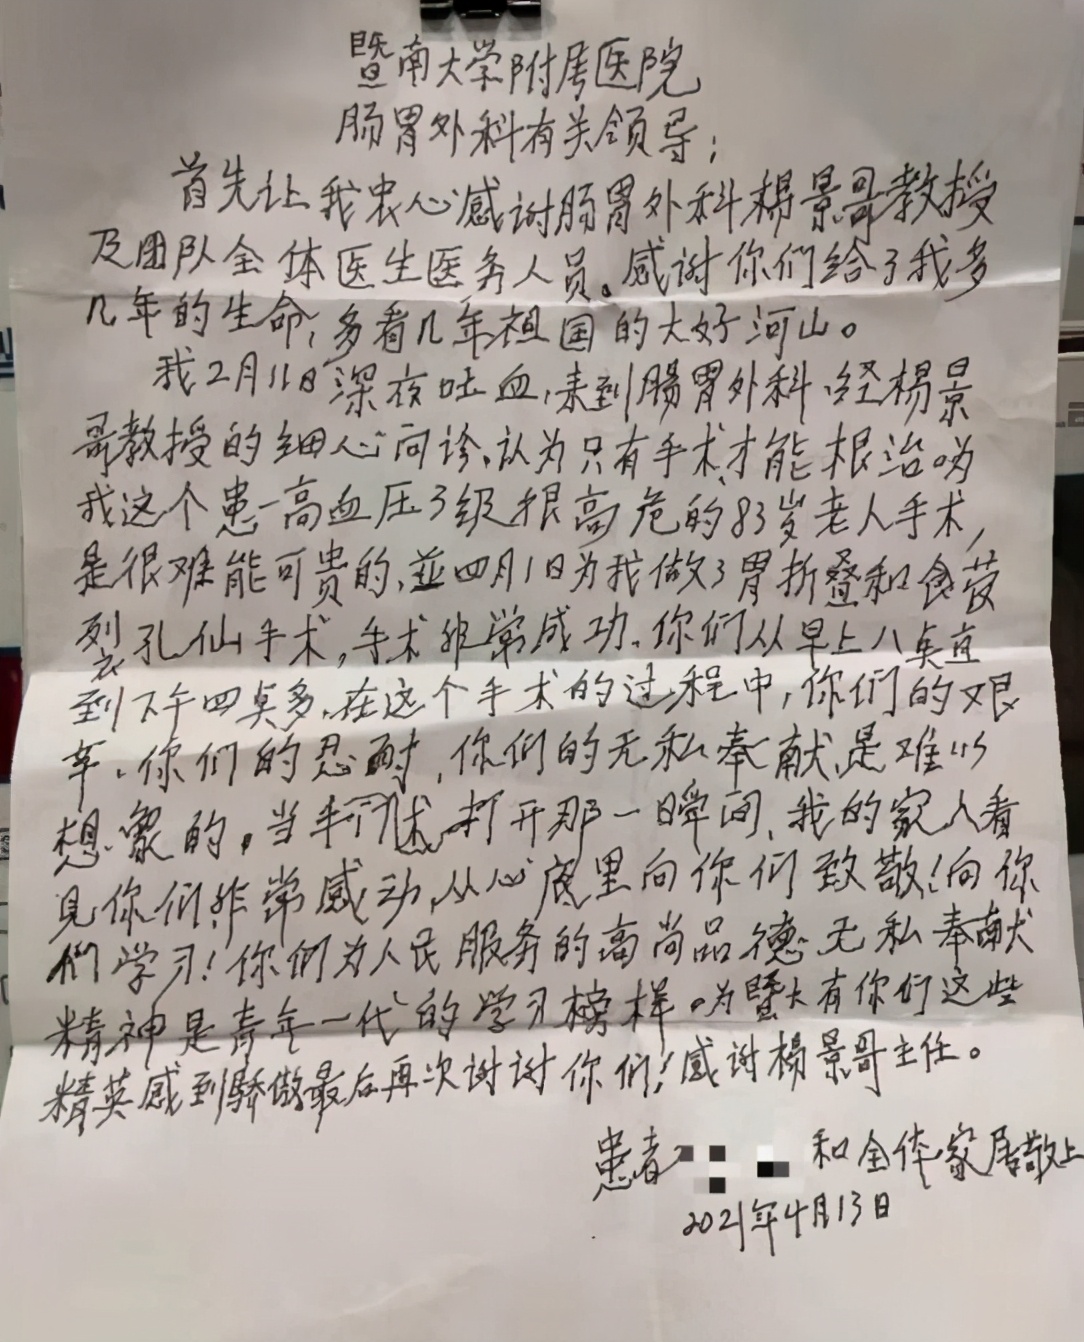 暨南大学附属医院
肠胃外科有关领导:
首先让我衷心感谢肠胃外科杨景哥教授
及团队全体医生医务人员。感谢你们给了我多
几年的生命,多看几年祖国的大好河山。
我2月11日深夜吐血,来到肠胃外科、经杨景
哥教授的细心问诊、认为只有手术才能根治
我这个患高血压3级很高危的83岁老人手术,
是很难能可贵的、並四月1日为我做了胃折叠和食管
裂孔仙手术,手术非常成功、你们从早上八奌直
到下午四奌多、在这个手术的过程中,你们的艰
辛、你们的忍耐,你们的无私奉献是难以
想象的。当手术门打开那一瞬间、我的家人看
见你们非常感动,从心底里向你们致敬!向你
们学习!你们为人民服务的高尚品德无私奉献
精神是青年一代的学习榜样。为暨大有你们这些
精英感到骄傲最后再次谢谢你们!感谢杨景哥主任。
患者 和全体家居敬上
2021年4月13日